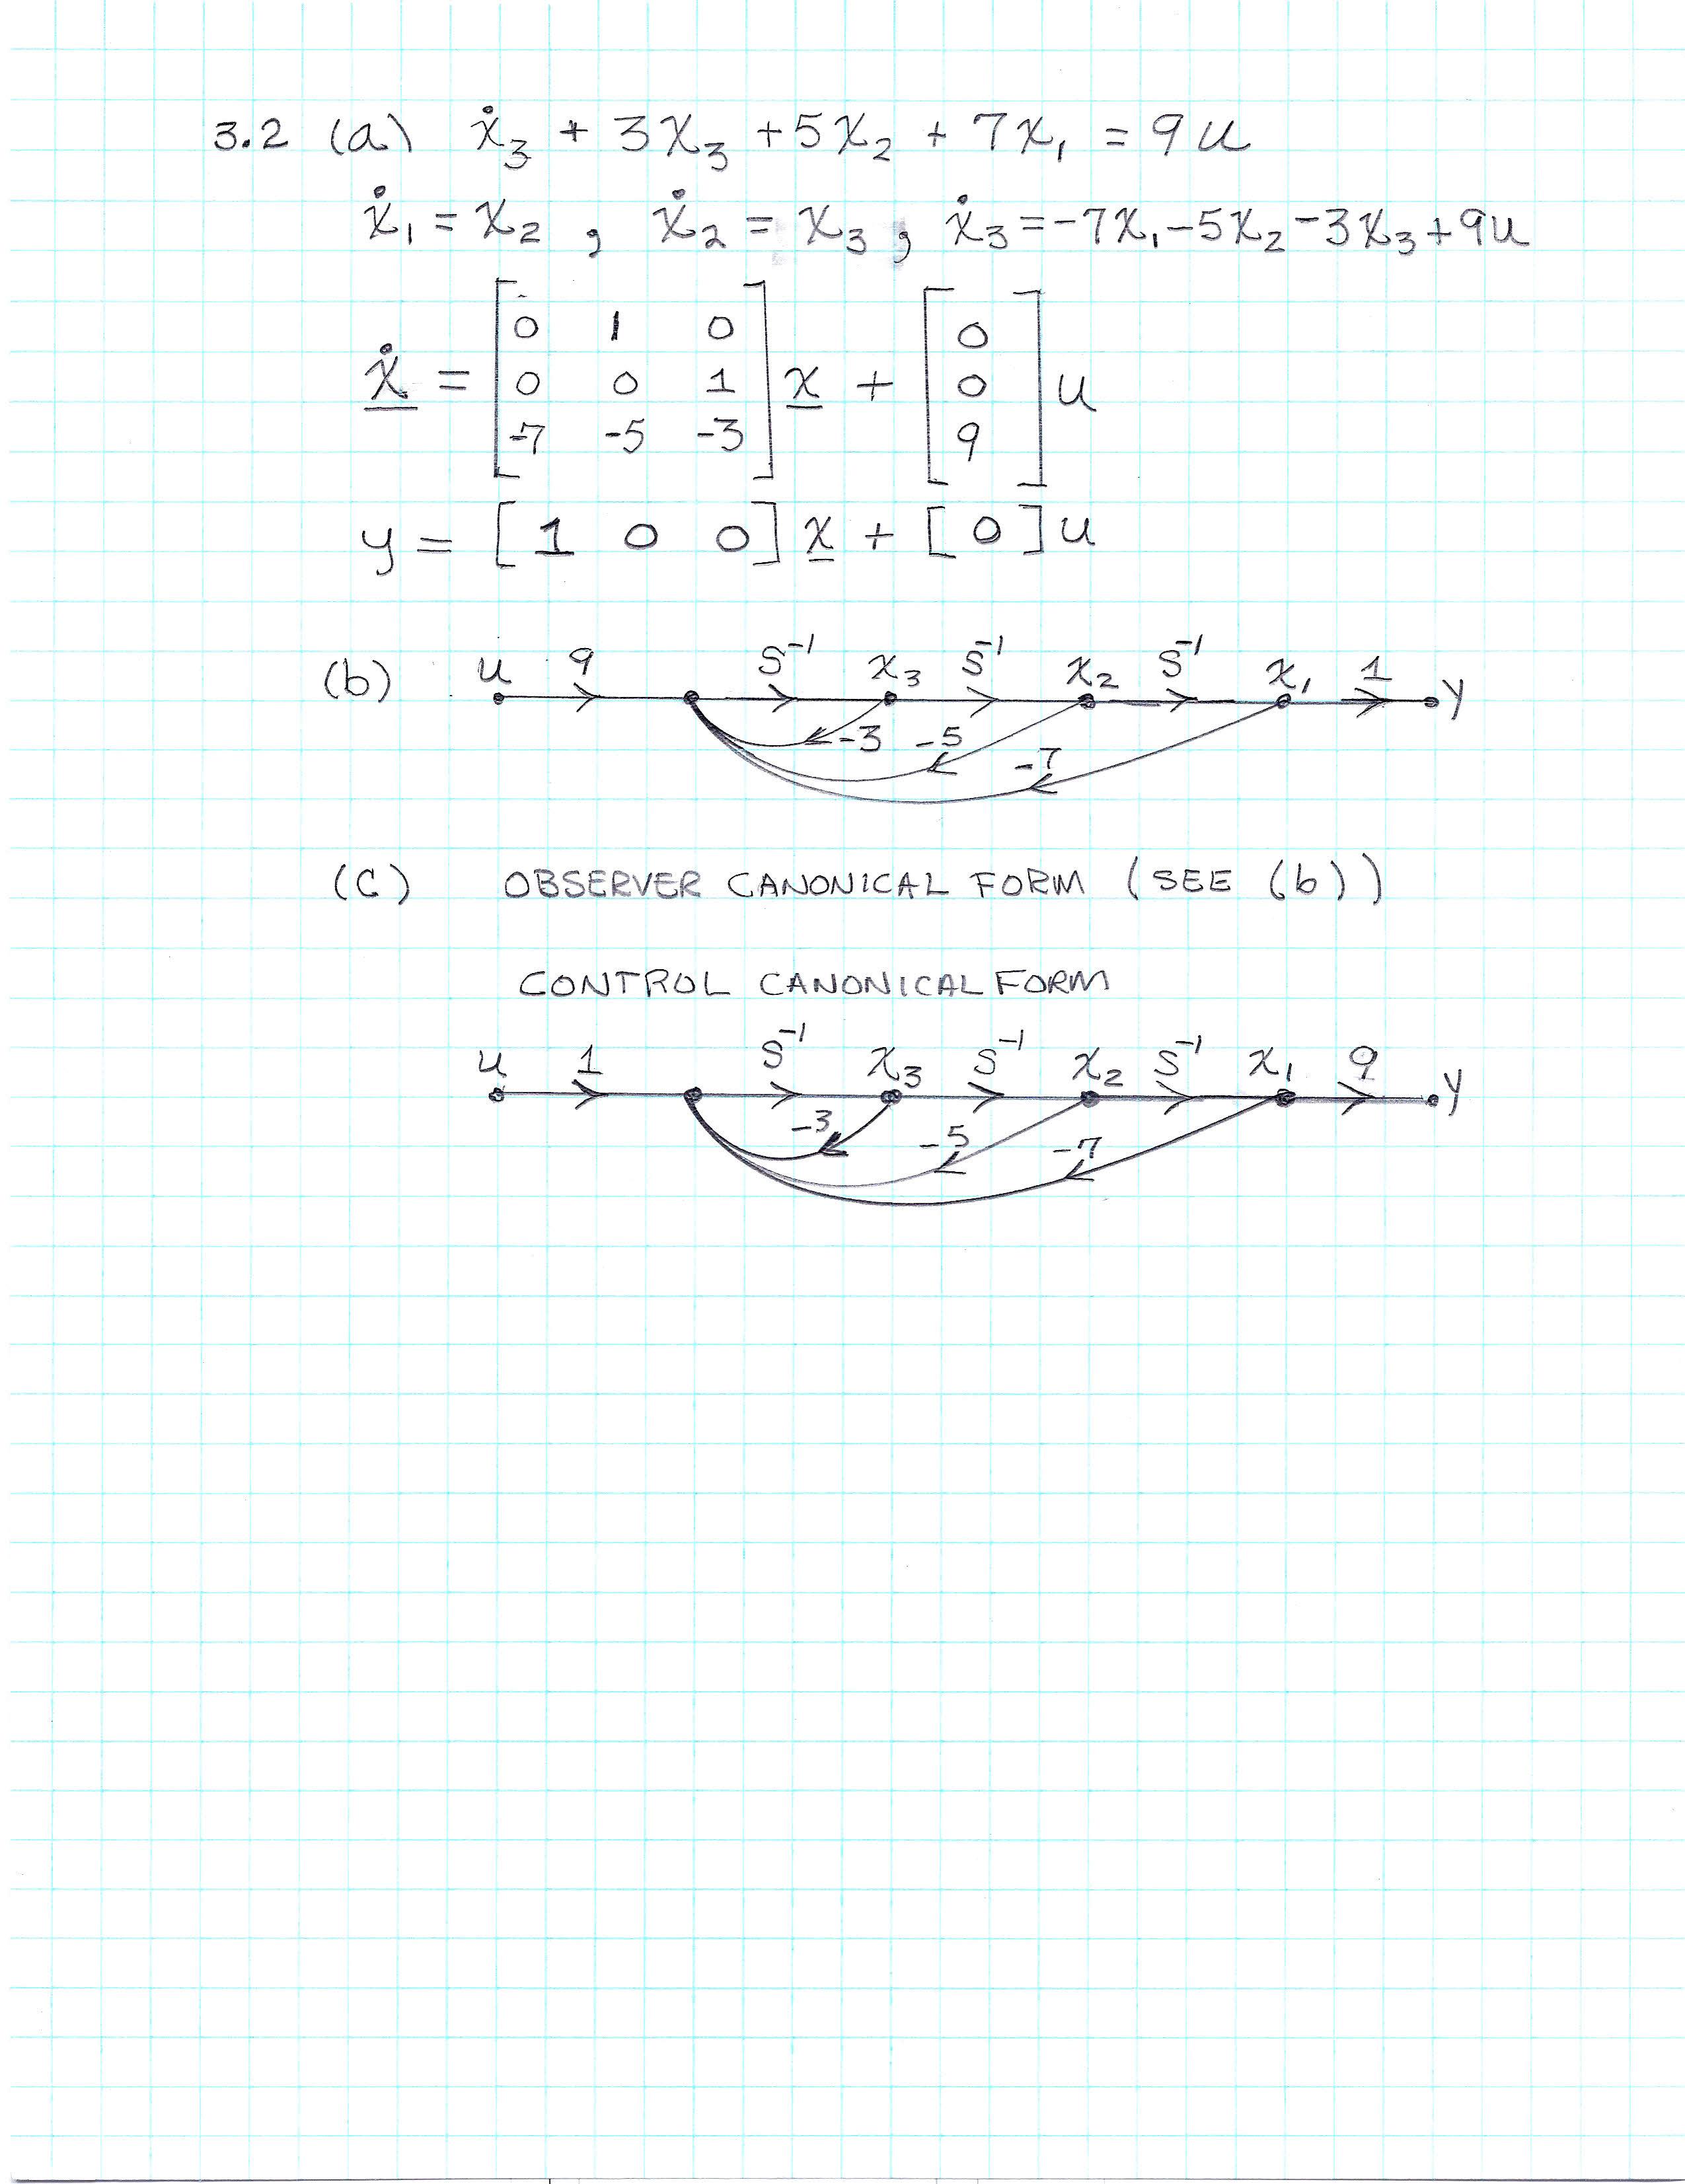 3.2 (a) ẋ₃ + 3x₃ + 5x₂ + 7x₁ = 9u
ẋ₁ = x₂ , ẋ₂ = x₃ , ẋ₃ = -7x₁ -5x₂ -3x₃ + 9u
ẋ = [ 0 1 0 ; 0 0 1 ; -7 -5 -3 ] x + [ 0 ; 0 ; 9 ] u
y = [ 1 0 0 ] x + [ 0 ] u
(b) u 9 s⁻¹ x₃ s⁻¹ x₂ s⁻¹ x₁ 1 y
-3 -5 -7
(c) OBSERVER CANONICAL FORM (SEE (b))
CONTROL CANONICAL FORM
u 1 s⁻¹ x₃ s⁻¹ x₂ s⁻¹ x₁ 9 y
-3 -5 -7